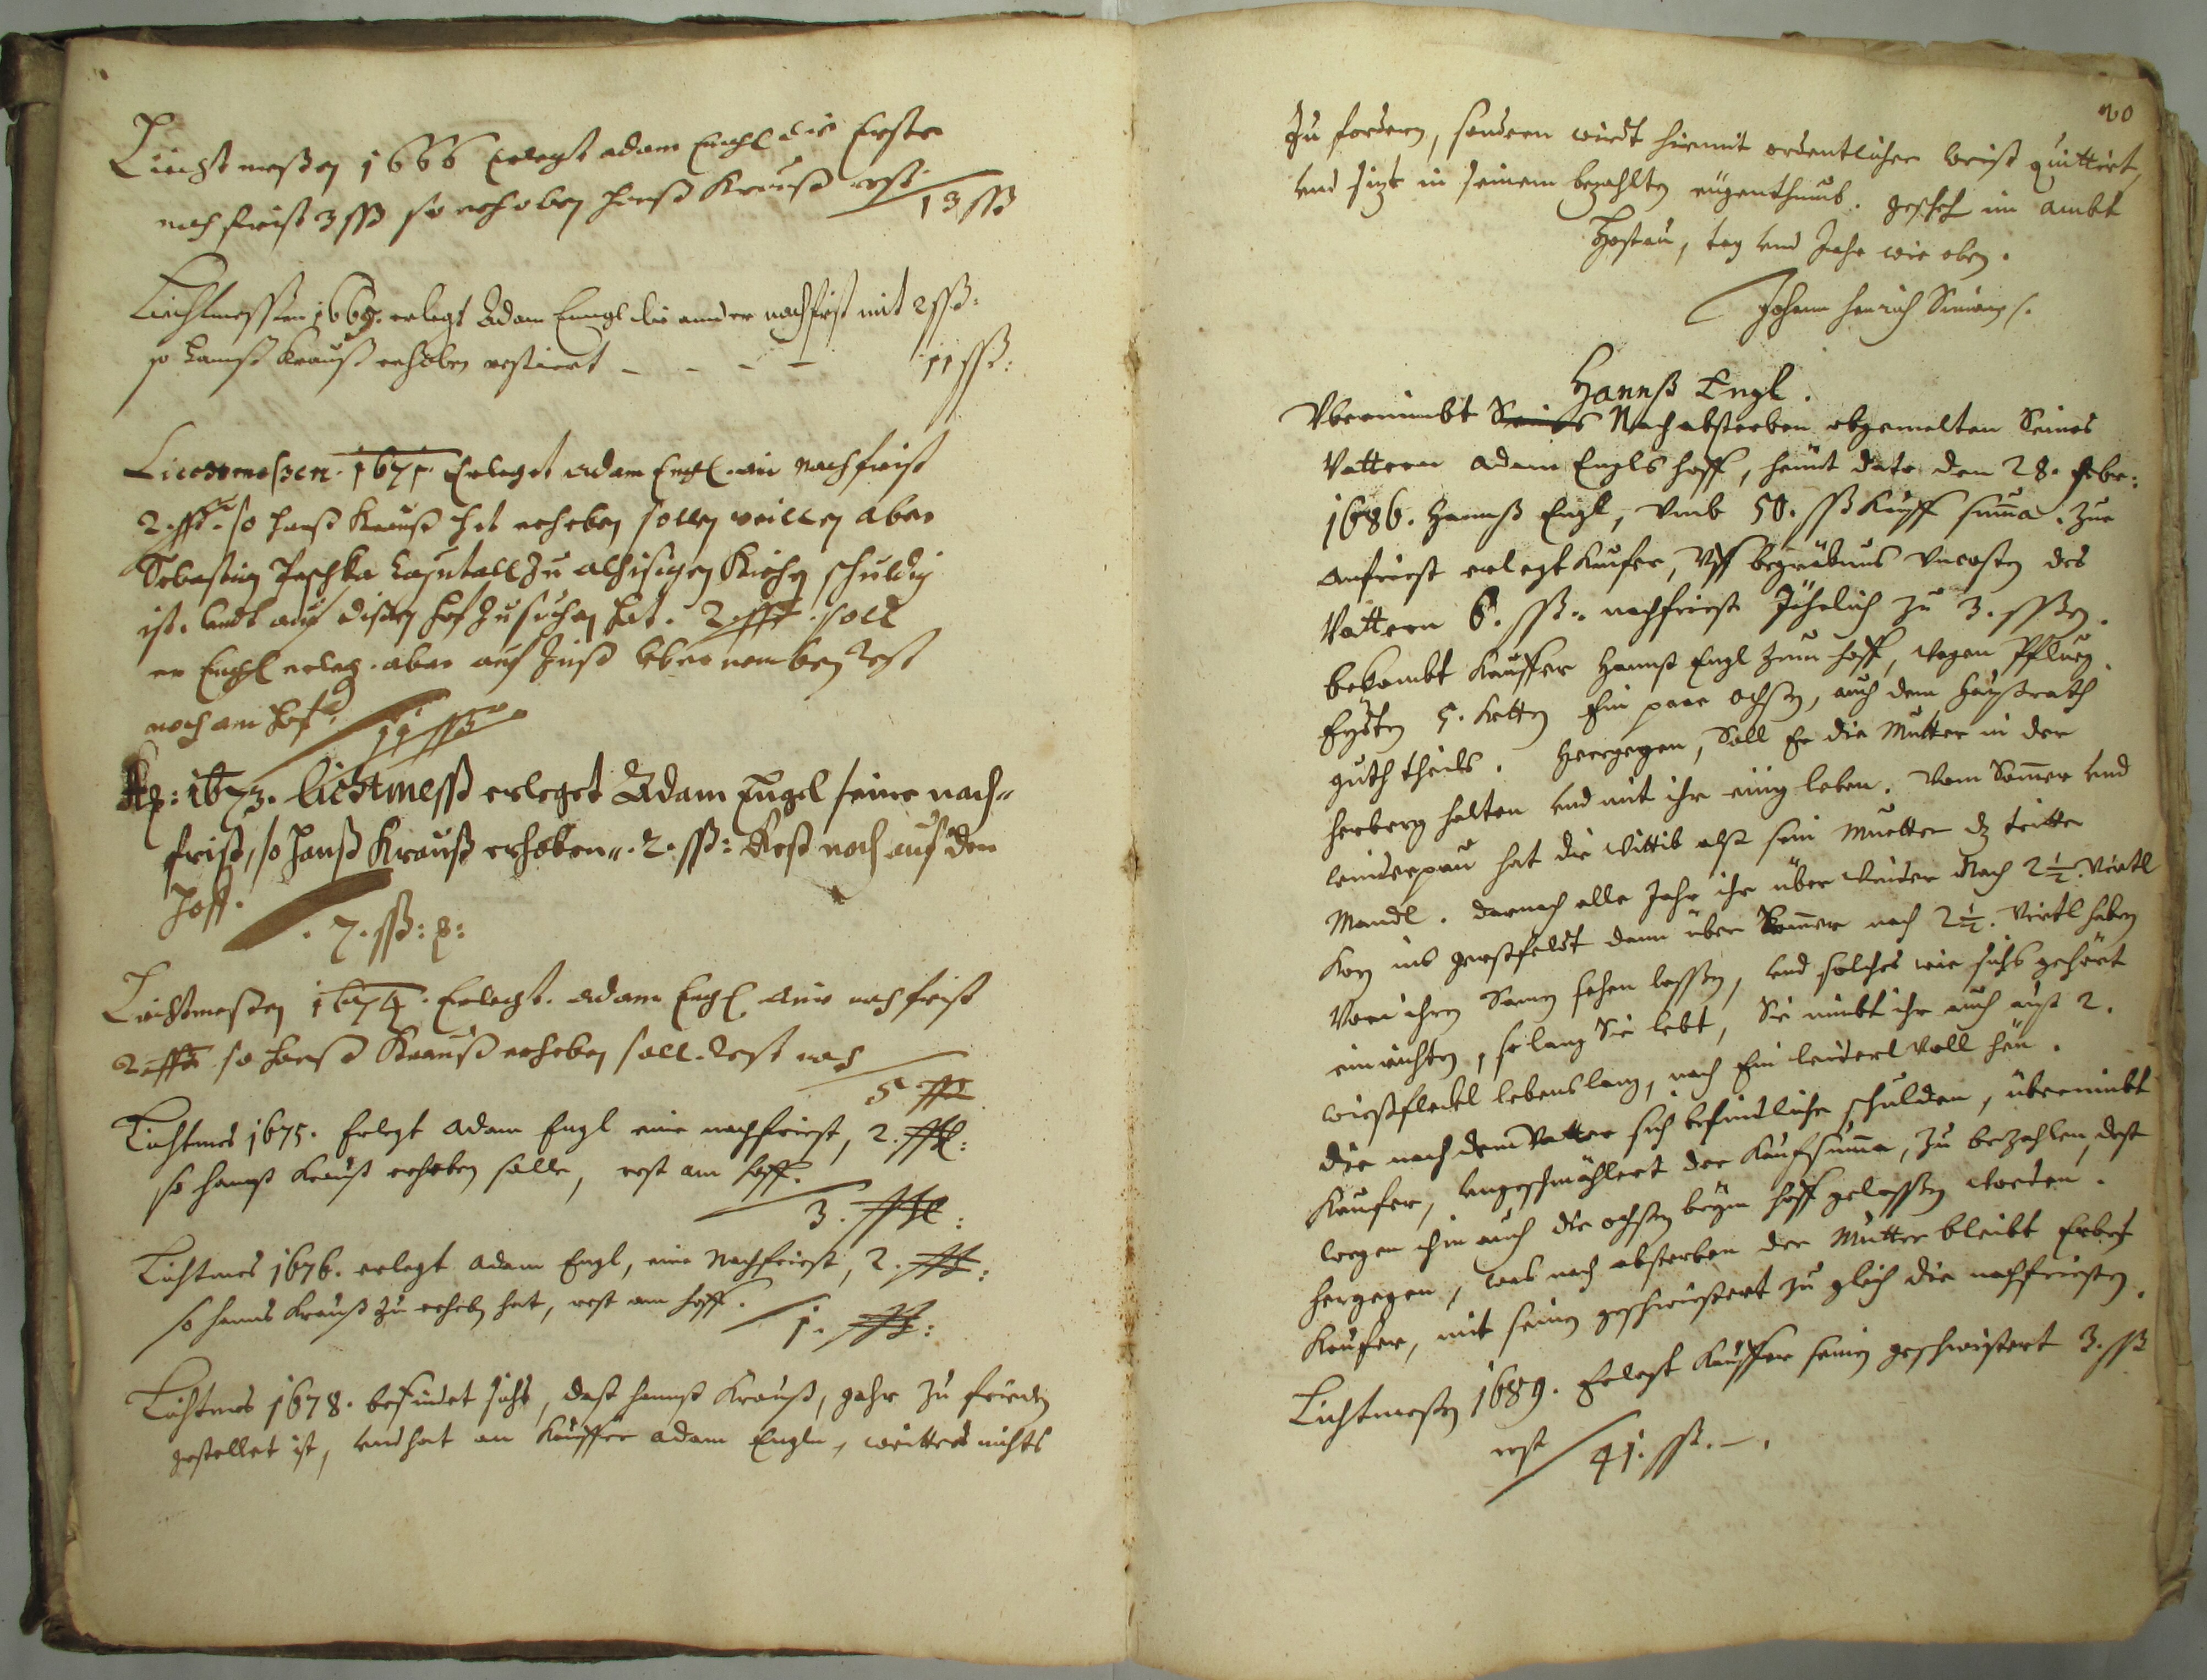 Liechtmeßen 1666 Erlegt adam Engl die Erste
nachfrist 3 ßß so erhoben Hanß Krauß rest
13 ßß
Lichtmessen 1669. erlegt Adam Enngl die ander nachfrist mit 2 ßß:
so Hannß Krauß erhoben restiert - - - - 11 ßß:
Liechtmeßen. 1671. Erleget adam Engl. ein nachfrist
2. ßß. so Hanß Krauß het erheben sollen weillen aber
Sebastian Peschka Capitall Zu alhisigen Kirchen schuldig
ist. undt auf disen hof Zu suchen hat. 2. ßß. soll
er Engl erleg. aber auf Zinß rest
noch am Hof.
11 ßß
Ao: 1673. lichtmess erleget Adam Engel seine nach=
frist, so Hanß Krauß erhoben. 2. ßß: Rest noch auf den
Hoff.
. 7. ßß:
Liechtmeßen 1674. Erlegt. adam Engl. eine nachfrist
2 ßß so Hanß Krauß erheben soll. Rest noch
5 ßß
Lichtmes 1675. Erlegt Adam Engl eine nachfrist, 2. ßß:
so Hannß Krauß erheben solle, rest am hoff.
3. ßß:
Lichtmes 1676. erlegt Adam Engl, eine Nachfrist, 2. ßß:
so Hanns Krauß zu erheben hat, rest am hoff.
1. ßß:
Lichtmes 1678. befindet sichs, daß hannß Krauß, gahr zu frieden
gestellet ist, und hat an Kauffer Adam Engln, weitters nichts
20
Zu fordern, sondern wirdt hiemit ordentlicher weiß quittirt,
und sizt in seinem bezahlten eigenthumb. geschehn im ambt
Hostau, tag und Jahr wie oben.
Johann Henrich
Hannß Engl.
Übernimbt Seines Nach absterben obgemelten Seines
Vattern Adam Engls hoff, heünt dato den 28. Febr:
1686. Hannß Engl, umb 50. ßß Kauff suma. Zur
anfrist erlegt Kaufer, Uff begräbnus uncosten des
Vattern 6. ßß. nachfrist Jährlich zu 3. ßßen.
bekombt Kauffer Hannß Engl zum hoff, Wagen Pflueg
Eysten 5. Ketten Ein paar ochsen, auch dem Haußrath
guth theils. Hergegen, Soll Er die Mutter in der
herberg halten und mit ihr einig leben. Vom Somer und
hat die Wittib alß sein Muetter dz tritte
Mandl. darnach alle Jahr ihr über Winter Nach 2 1/2. Viertl
Korn ins gerstfeldt dann über Sommer nach 2 1/2. Viertl haber
Von ihren Samen sehen lassen, und solches wie sichs gehört
einrichten, so lang Sie lebt, Sie nimbt ihr auch auß 2.
wießfleckl lebenslang, nach Ein voll heü.
Die nach dem Vatter sich befindliche schulden, übernimbt
Kaufer, ungeschmählert der Kaufsuma, zu bezahlen, dest
wegen ihm auch die ochsen beym hoff gelassen worden.
hergegen, was nach absterben der Mutter bleibt Erbet
Kaufer, mit seinen geschwistert zu gleich die nachfristen.
Lichtmeßen 1689. Erlegt Kauffer seinen geschwistert 3. ßß
rest 41. ßß. -.